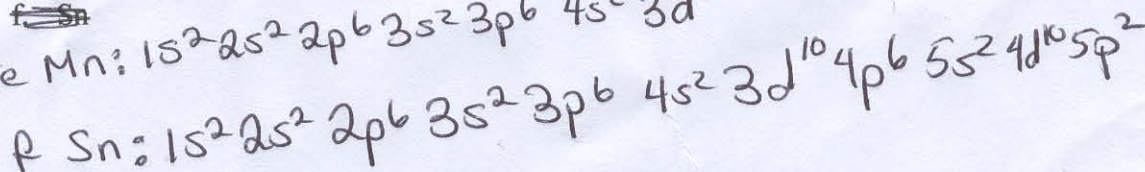 e Mn: 1s² 2s² 2p⁶ 3s² 3p⁶ 4s² 3d
f Sn: 1s² 2s² 2p⁶ 3s² 3p⁶ 4s² 3d¹⁰ 4p⁶ 5s² 4d¹⁰ 5p²